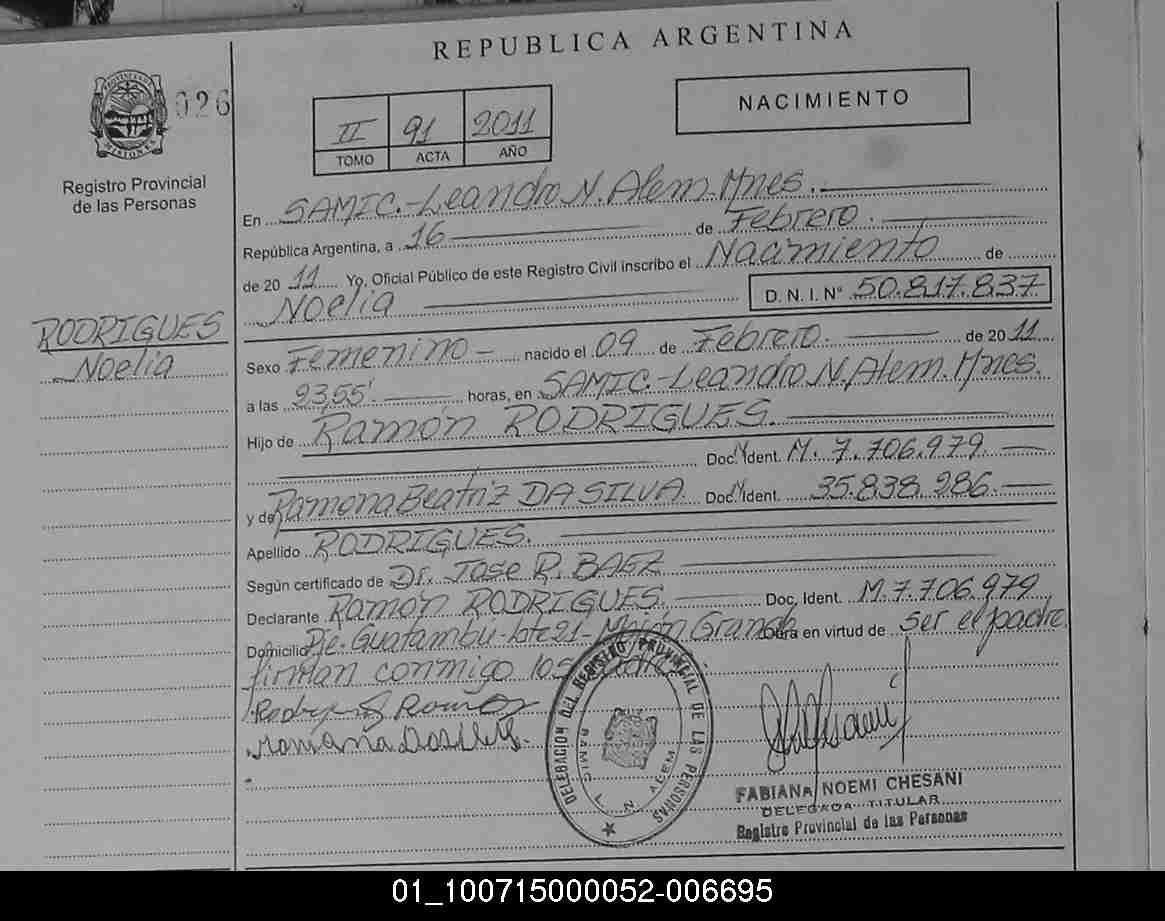 REPUBLICA ARGENTINA
PROVINCIA DE MISIONES
026
Registro Provincial
de las Personas
II 91 2011
TOMO ACTA AÑO
NACIMIENTO
En SAMIC.-Leandro N. Alem-Mnes.
República Argentina, a 16 de Febrero.
de 2011 Yo, Oficial Público de este Registro Civil inscribo el Nacimiento de
Noelia D. N. I. Nº 50.817.837
RODRIGUES
Noelia
Sexo Femenino - nacido el 09 de Febrero. de 2011.
a las 23,55'. horas, en SAMIC.-Leandro N. Alem. Mnes.
Hijo de Ramón RODRIGUES.
Doc. Ident. M. 7.706.979.
y de Ramona Beatriz DA SILVA Doc. Ident. 35.838.986.
Apellido RODRIGUES.
Según certificado de Dr. Jose R. BAEZ
Declarante Ramón RODRIGUES. Doc. Ident. M.7.706.979
Domicilio Pje. Guatambu-lote 21- Grande Obra en virtud de ser el padre.
firman conmigo los
DELEGACION DEL REGISTRO PROVINCIAL DE LAS PERSONAS
SAMIC L. N. ALEM
FABIANA NOEMI CHESANI
DELEGADA TITULAR
Registro Provincial de las Personas
01_100715000052-006695